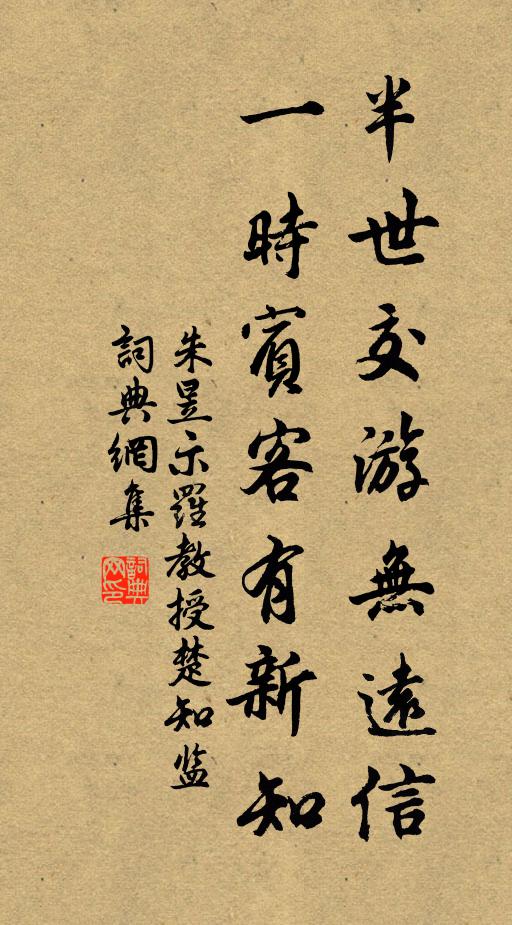 半世交游無遠信
一時賓客有新知
朱昱示羅教授楚知监
詞典網集
詞典网印